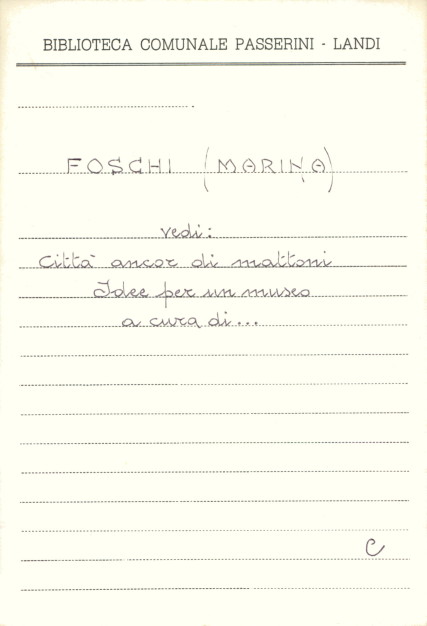 BIBLIOTECA COMUNALE PASSERINI - LANDI
FOSCHI (MARINA)
vedi:
Città ancor di mattoni
Idee per un museo
a cura di...
C